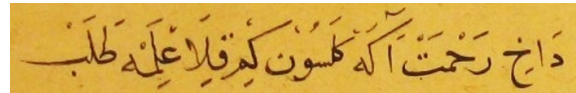 دَاخِ رَحْمَتْ اٰكَه كَلسُوْن كِم قِيلَا عِلْمَه طَلَبْ